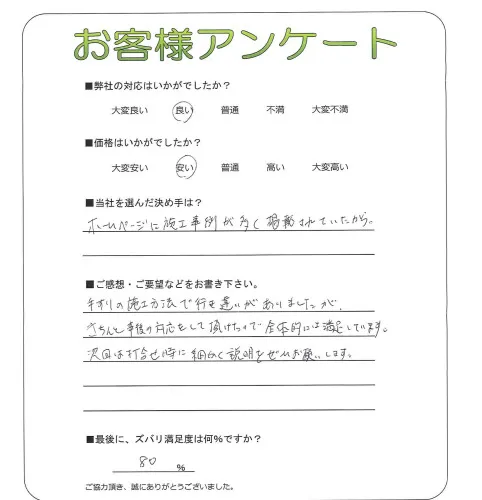 お客様アンケート
■弊社の対応はいかがでしたか？
大変良い 良い 普通 不満 大変不満
■価格はいかがでしたか？
大変安い 安い 普通 高い 大変高い
■当社を選んだ決め手は？
ホームページに施工事例が多く掲載されていたから。
■ご感想・ご要望などをお書き下さい。
手すりの施工方法で行き違いがありましたが、
きちんと事後の対応をして頂けたので全体的には満足しています。
次回は打合せ時に細かく説明をぜひお願いします。
■最後に、ズバリ満足度は何％ですか？
80 ％
ご協力頂き、誠にありがとうございました。